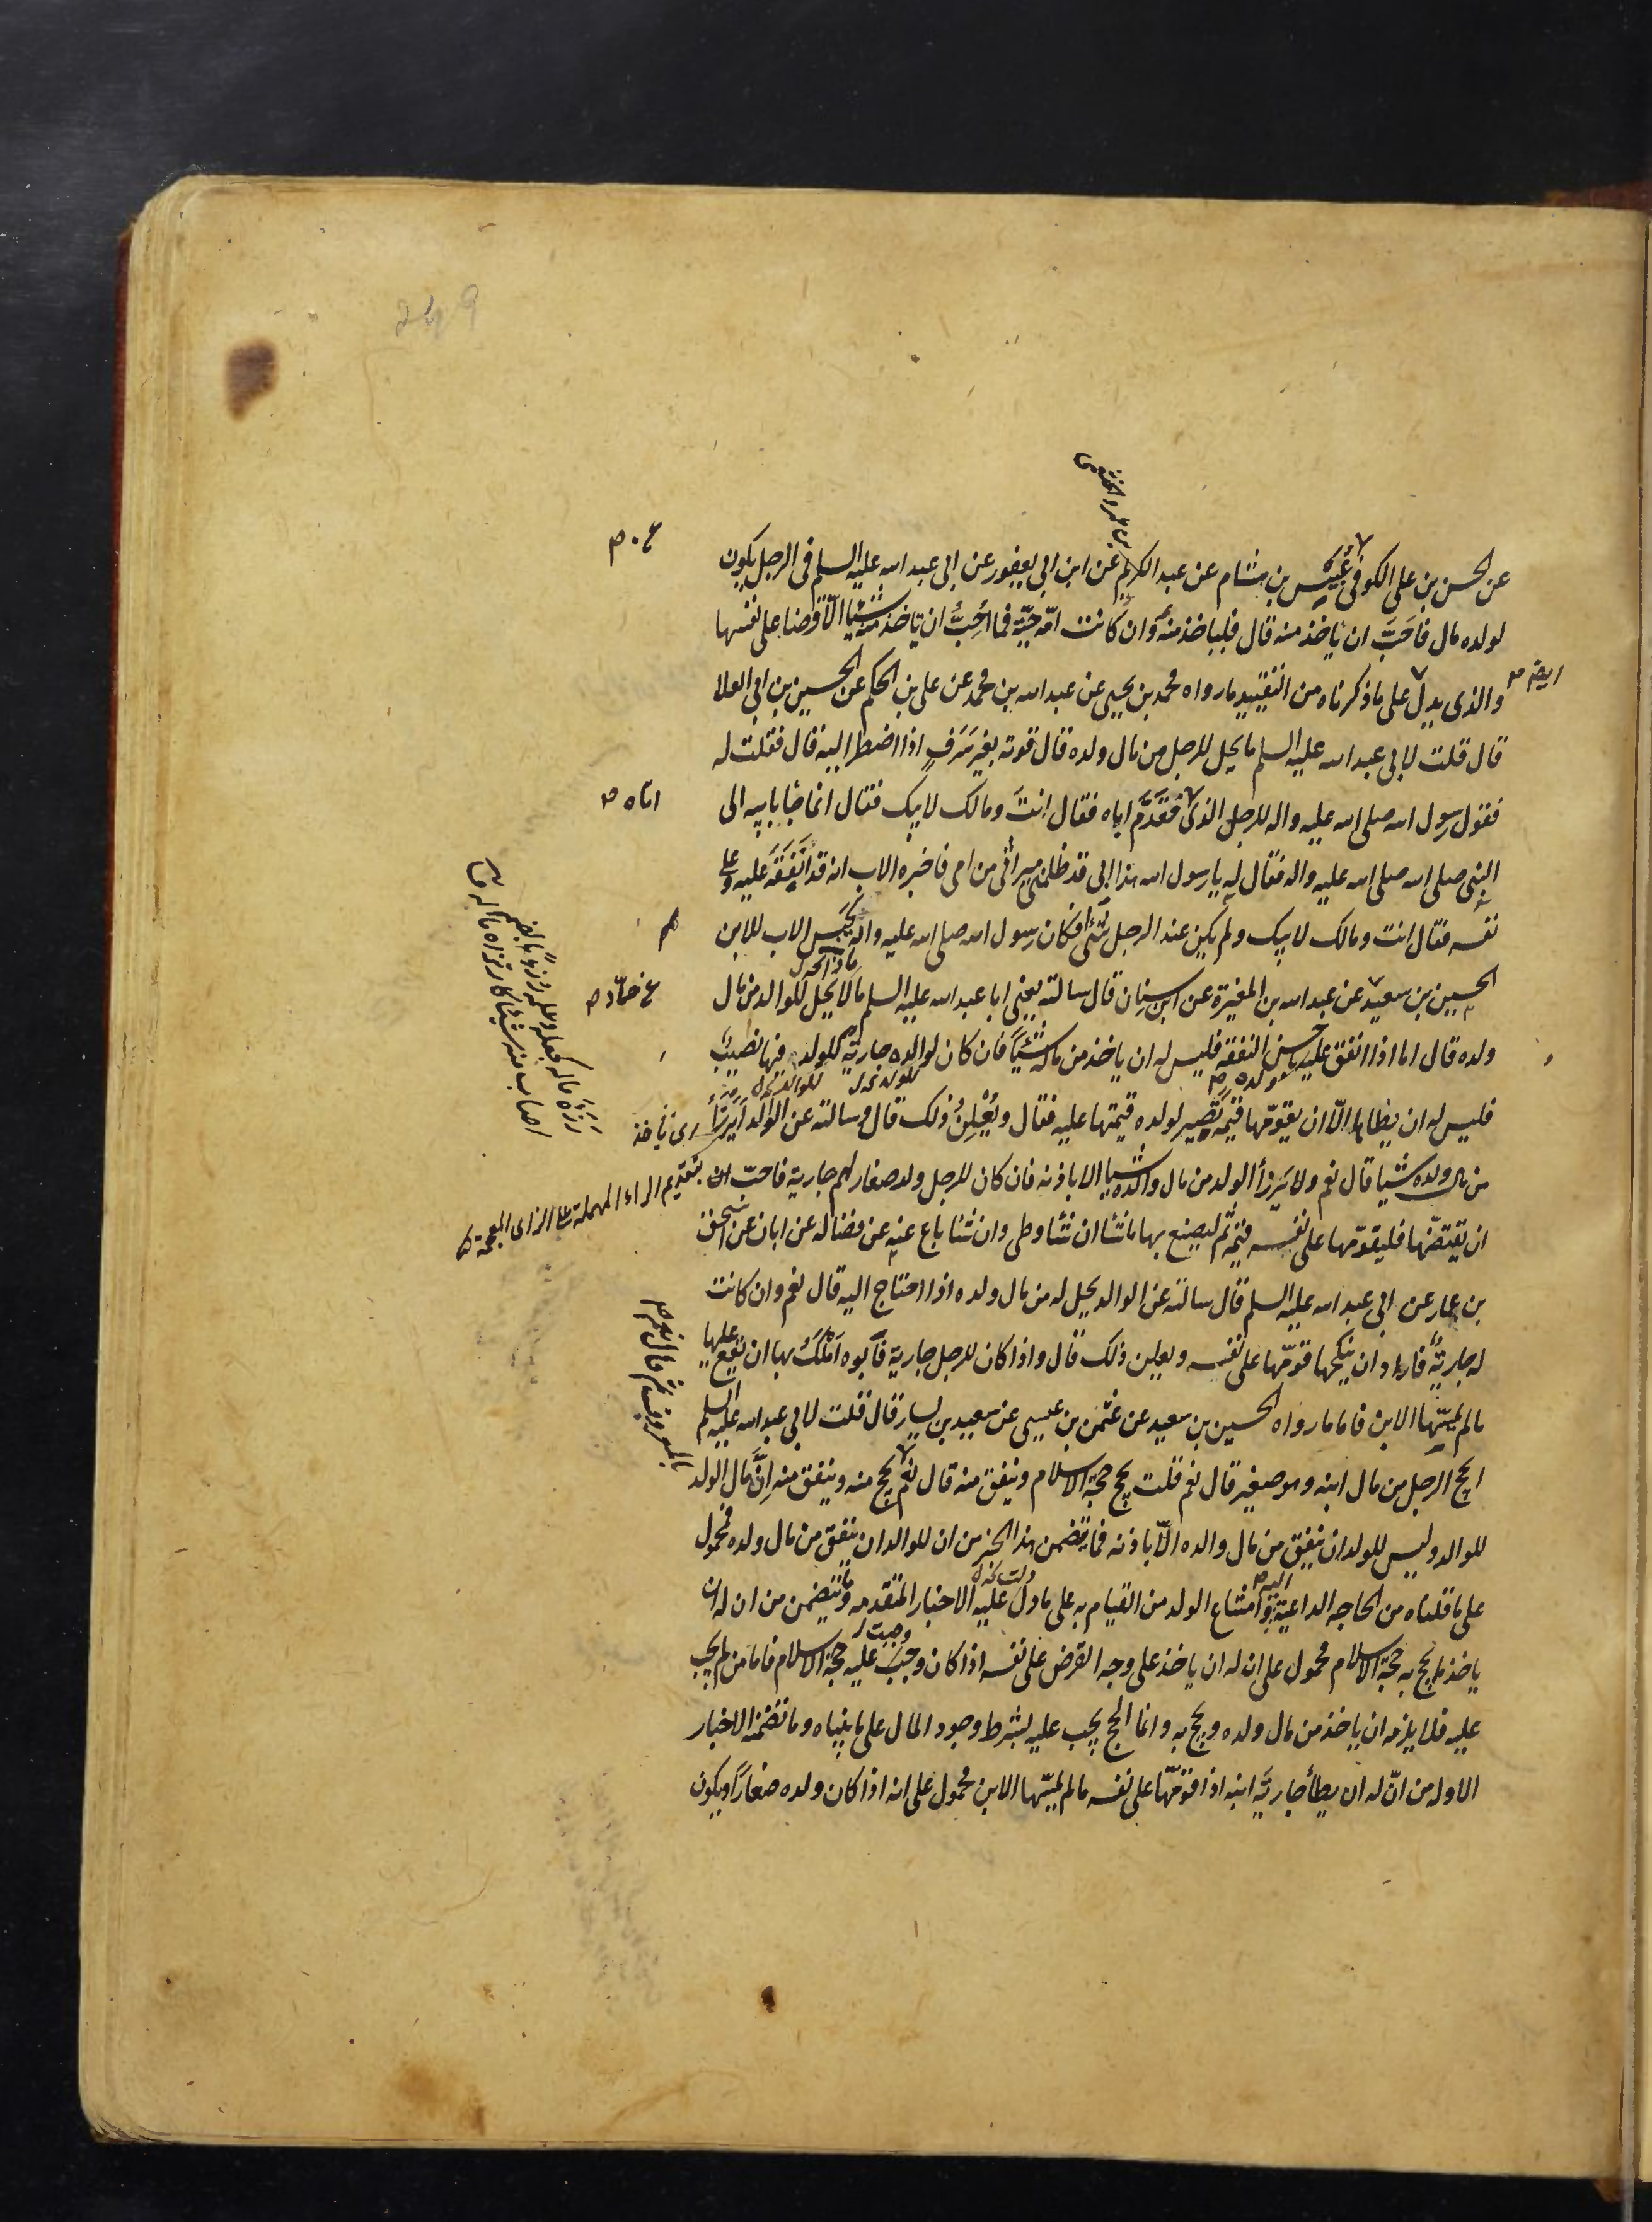 عن الحسن بن على الكوفى عُبَيس بن هشام عن عبد الكريم عن ابن ابى يعفور عن ابى عبد الله عليه السلم فى الرجل يكون
لولده مال فاَحَبَّ ان ياخذ منه قال فلياخذ منه وان كانت امّه حيّة فما اُحِبُّ ان ياخذ منه شيئا الّا قرضا على نفسها
والذى يدل على ما ذكرناه من التقييد ما رواه محمد بن يحيى عن عبد الله بن محمد عن على بن الحكم عن الحسين بن ابى العلا
قال قلت لابى عبد الله عليه السلم ما يحل للرجل من مال ولده قال قوته بغير سَرَفٍ اذا اضطر اليه قال فقلت له
فقول رسول الله صلى الله عليه واله للرجل الذى فقَدَّمَ اباه فقال انتَ ومالك لابيك فقال انما جا بابيه الى
النبى صلى الله صلى الله عليه واله فقال له يا رسول الله هذا ابى قد ظلمنى ميراثى من امى فاخبره الاب انه قد انفَقَه عليه وعلى
نفسه فقال انت ومالك لابيك ولم يكن عند الرجل شئ افكان رسول الله صلى الله عليه واله يحبس الاب للابن
الحسين بن سعيد عن عبد الله بن المغيرة عن ابن سنان قال سالته يعنى ابا عبد الله عليه السلم ما لا يحل للوالد من مال
ولده قال اما اذا انفق عليه باحسن النفقة فليس له ان ياخذ من ماله شيئاً فان كان لوالده جارية للولد فيها نصيبٌ
فليس له ان يطاها الّا ان يقوّمها قيمه تصير لولده قيمتها عليه فقال ويُعْلِنُ ذلك قال وسالته عن الوالد اَيَرْزَأُ
من مال ولده شيئا قال نعم ولا يَرزأ الولد من مال والده شيئا الا باذنه فان كان للرجل ولد صغار لهم جارية فاحبّ
ان يقتضّها فليقوّمها على نفسه قيمة ثم ليصنع بها ما شا ان شا وطى وان شا باع عنه عن فضاله عن ابان عن اسحق
بن عمار عن ابى عبد الله عليه السلم قال سالته عن الوالد يحل له من مال ولده اذا احتاج اليه قال نعم وان كانت
له جاريةٌ فاراد ان ينكحها قوّمها على نفسه ويعلن ذلك قال واذا كان للرجل جارية فابوه اَمْلَكُ بها ان يقع عليها
ما لم يمسّها الابن فاما ما رواه الحسين بن سعيد عن عثمن بن عيسى عن سعيد بن يسار قال قلت لابى عبد الله عليه السلم
ايحج الرجل من مال ابنه وهو صغير قال نعم قلت يحج حجة الاسلام وينفق منه قال نعم يحج منه وينفق منه اِنَّ مال الولد
للوالد وليس للولد ان ينفق من مال والده الّا باذنه فما يتضمن هذا الخبر من ان للوالد ان ينفق من مال ولده فمحمول
على ما قلناه من الحاجه الداعية وامتناع الولد من القيام به على ما دل عليه الاخبار المتقدمه وما يتضمن من ان له ان
ياخذ ما يحج به حجة الاسلام محمول على ان له ان ياخذ على وجه القرض على نفسه اذا كان وجبَ عليه حجة الاسلام فاما من لم يجب
عليه فلا يلزمه ان ياخذ من مال ولده ويحج به وانما الحج يجب عليه بشرط وجود المال على ما بيناه وما تضمنه الاخبار
الاوله من انّ له ان يطأ جاريَة ابنه اذا قوّمها على نفسه ما لم يمسّها الابن محمول على انه اذا كان ولده صغاراً ويكون
بن عمرو الخثعمى
اباه
رَزَأَه ماله كجعله وعلمه رزءًا بالضم
اصاب منه شيئا كارتزاه ماله ق
اى ياخذ
بتقديم الراء المهملة على الزاى المعجمة